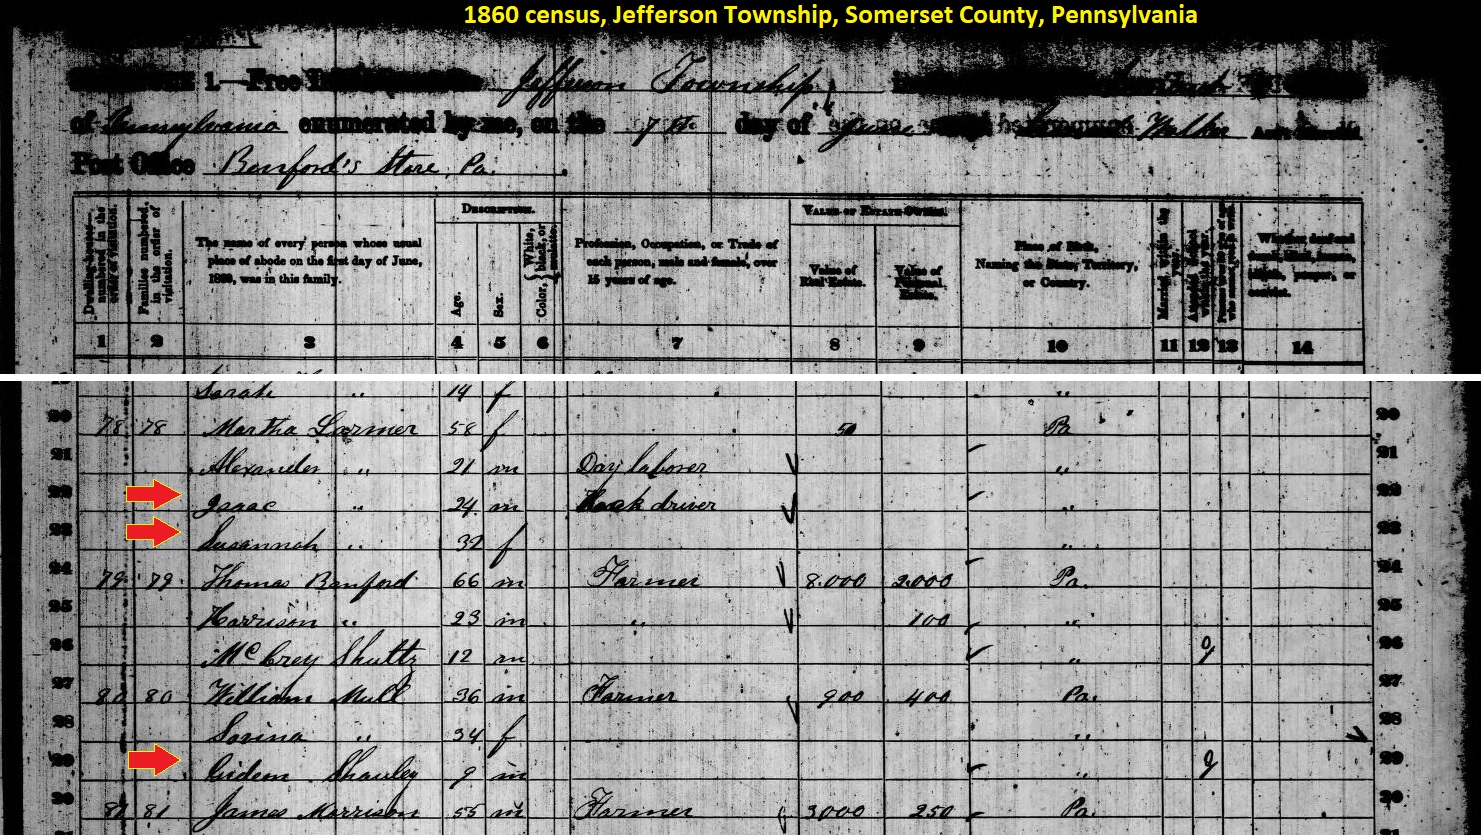 1860 census, Jefferson Township, Somerset County, Pennsylvania
1.—Free Jefferson Township
of Pennsylvania enumerated by me, on the 7th day of June
Post Office Benford's Store, Pa.
DESCRIPTION. VALUE OF ESTATE OWNED.
Dwelling-houses—numbered in the order of visitation.
Families numbered in the order of visitation.
The name of every person whose usual place of abode on the first day of June, 1860, was in this family.
Age.
Sex.
Color, { White, black, or mulatto.
Profession, Occupation, or Trade of each person, male and female, over 15 years of age.
Value of Real Estate.
Value of Personal Estate.
Place of Birth, Naming the State, Territory, or Country.
1 2 3 4 5 6 7 8 9 10 11 12 13 14
Sarah " 14 f "
20 78 78 Martha Larmer 58 f 50 Pa 20
21 Alexander " 21 m Day laborer " 21
22 Isaac " 24 m driver " 22
23 Susannah " 32 f " 23
24 79 79 Thomas Banford 66 m Farmer 8.000 2.000 Pa. 24
25 Harrison " 23 m " 100 " 25
26 McCrey Shultz 12 m " 26
27 80 80 William Mull 36 m Farmer 900 400 Pa. 27
28 Sorina " 34 f " 28
29 Gideon Shauley 9 m " 29
30 81 81 James Morrison 55 m Farmer 3000 250 Pa. 30